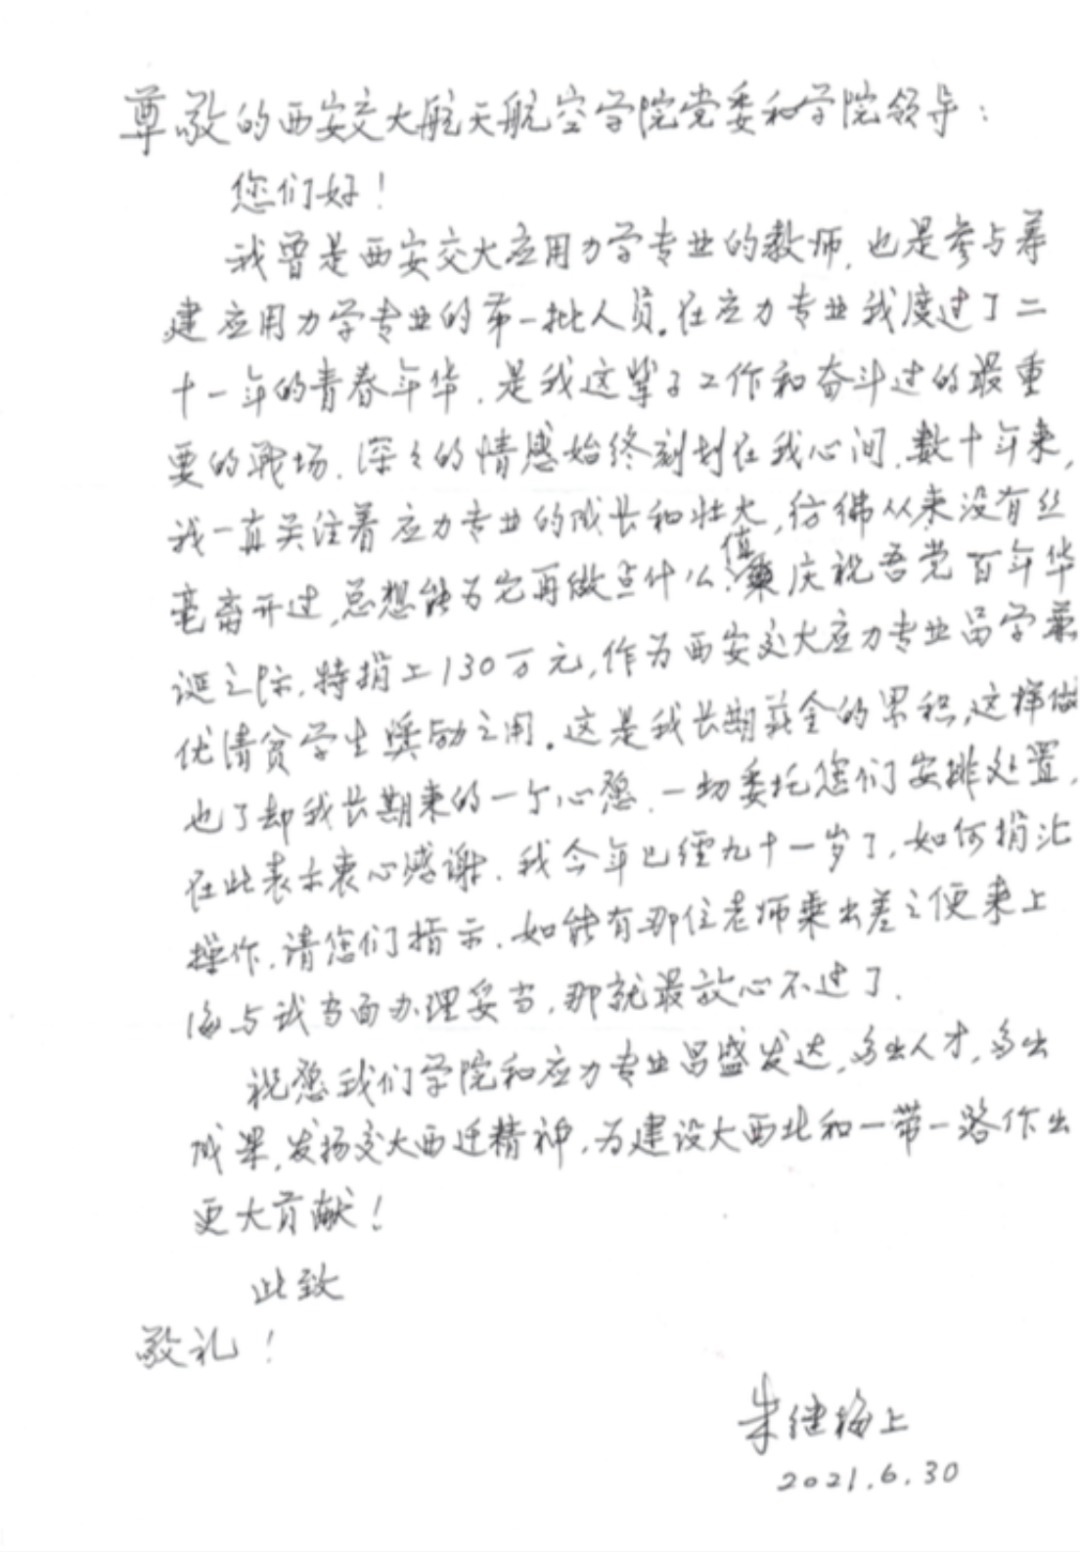 尊敬的西安交大航天航空学院党委和学院领导：
您们好！
我曾是西安交大应用力学专业的教师，也是参与筹
建应用力学专业的第一批人员。在应力专业我度过了二
十一年的青春年华，是我这辈子工作和奋斗过的最重
要的战场，深々的情感始终刻划在我心间，数十年来，
我一直关注着应力专业的成长和壮大，仿佛从来没有丝
毫离开过，总想能为它再做点什么。值庆祝吾党百年华
诞之际，特捐上130万元，作为西安交大应力专业品学兼
优清贫学生奖励之用。这是我长期薪金的累积，这样做
也了却我长期来的一个心愿，一切委托您们安排处置，
在此表示衷心感谢。我今年已经九十一岁了，如何捐汇
操作，请您们指示，如能有那位老师乘出差之便来上
海与我当面办理妥当，那就最放心不过了。
祝愿我们学院和应力专业昌盛发达，多出人才，多出
成果，发扬交大西迁精神，为建设大西北和一带一路作出
更大贡献！
此致
敬礼！
朱继梅上
2021.6.30